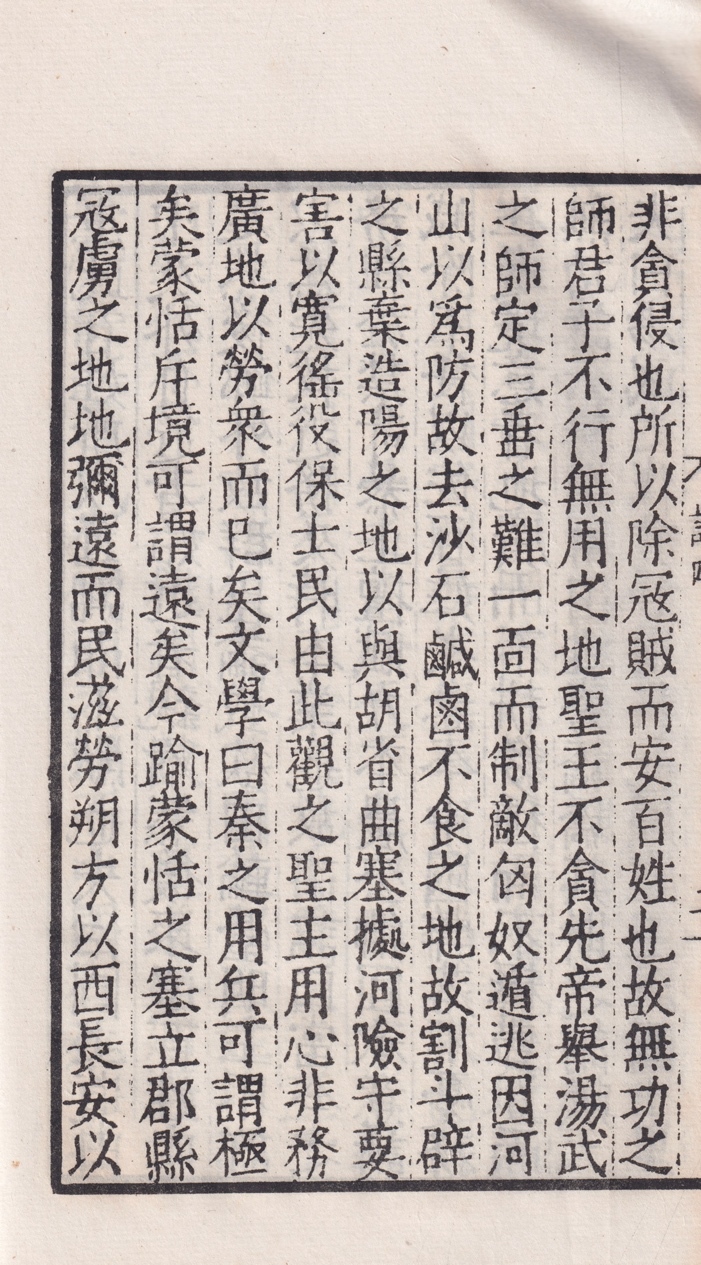 非貪侵也所以除冦賊而安百姓也故無功之
師君子不行無用之地聖王不貪先帝舉湯武
之師定三垂之難一面而制敵匈奴遁逃因河
山以爲防故去沙石鹹鹵不食之地故割斗辟
之縣棄造陽之地以與胡省曲塞據河險守要
害以寛徭役保士民由此觀之聖主用心非務
廣地以勞衆而已矣文學曰秦之用兵可謂極
矣蒙恬斥境可謂遠矣今踰蒙恬之塞立郡縣
冦虜之地地彌遠而民滋勞朔方以西長安以